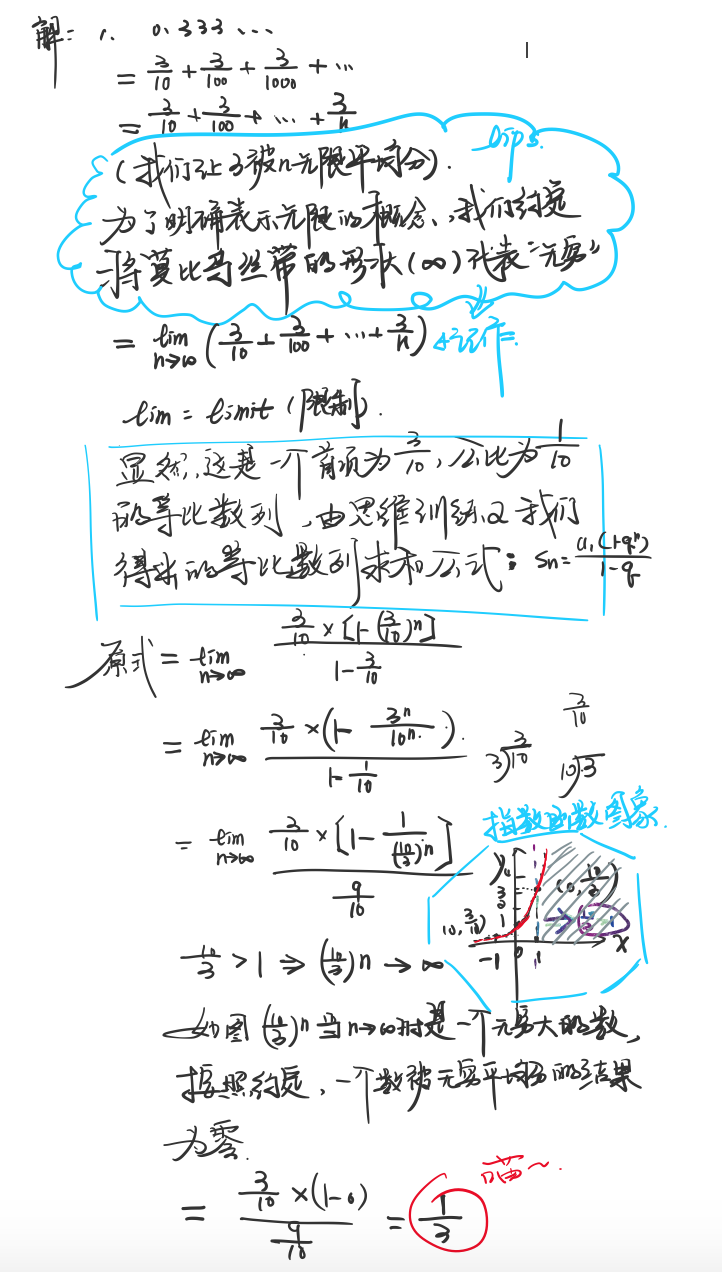 解: 1. 0.333...
= 3/10 + 3/100 + 3/1000 + ...
= 3/10 + 3/100 + ... + 3/n
Dips.
(我们让3被n无限平均分).
为了明确表示无限的概念,我们约定
将莫比乌丝带的形状(∞)代表"无穷"
= lim n→∞ (3/10 + 3/100 + ... + 3/n) 记作=
lim = limit (限制).
显然,这是一个首项为3/10,公比为1/10
的等比数列,由思维训练2我们
得出的等比数列求和公式: Sn = a1(1-qⁿ)/1-q
原式 = lim n→∞ 3/10 × [1-(3/10)ⁿ] / 1-3/10
= lim n→∞ 3/10 × (1- 3ⁿ/10ⁿ) / 1-1/10
3⟌3/10
3/10
10⟌3
= lim n→∞ 3/10 × [1- 1/(10/3)ⁿ] / 9/10
指数函数图象.
y
3
2
1
(0, 10/3)
(0, 3/10)
-1 0 1 x
10/3 > 1 ⇒ (10/3)n → ∞
如图 (10/3)ⁿ 当n→∞时是一个无穷大的数,
按照约定,一个数被无穷平均分的结果
为零.
= 3/10 × (1-0) / 9/10 = 1/3
喵~.